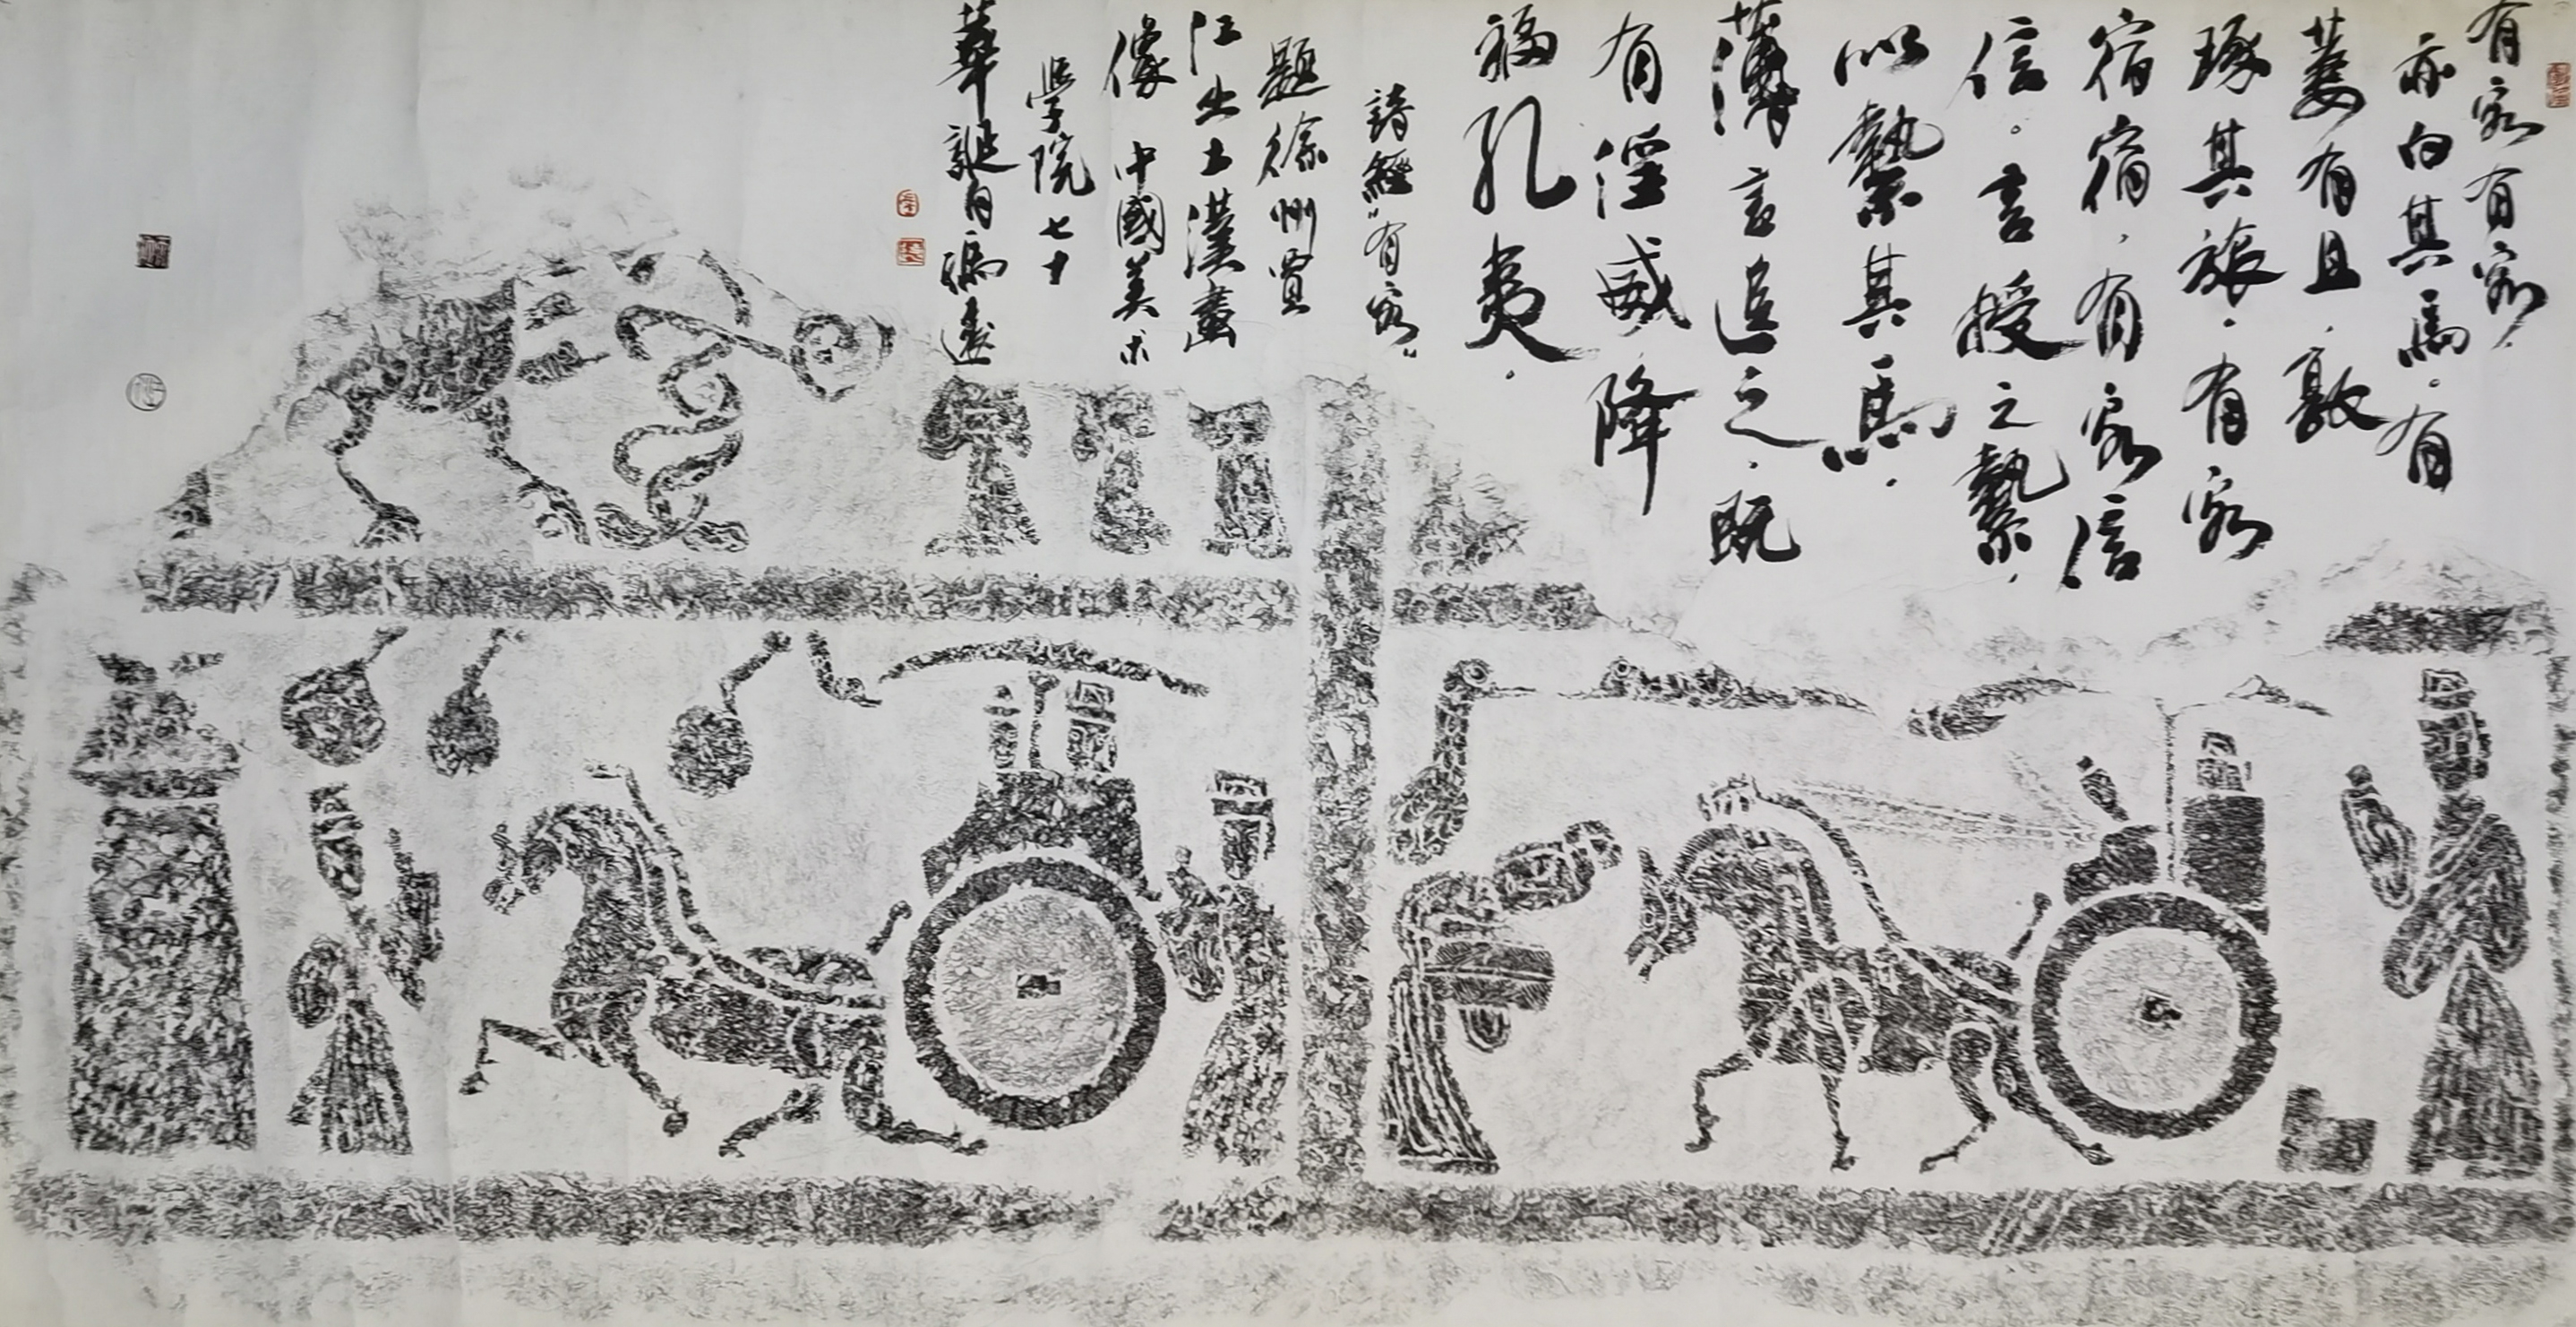 有客有客，
亦白其馬。有
萋有且，敦
琢其旅。有客
宿宿，有客信
信。言授之縶，
以縶其馬。
薄言追之，既
有淫威，降
福孔夷。
詩經"有客"
題徐州賈
汪出土漢畫
像 中國美术
學院七十
華誕